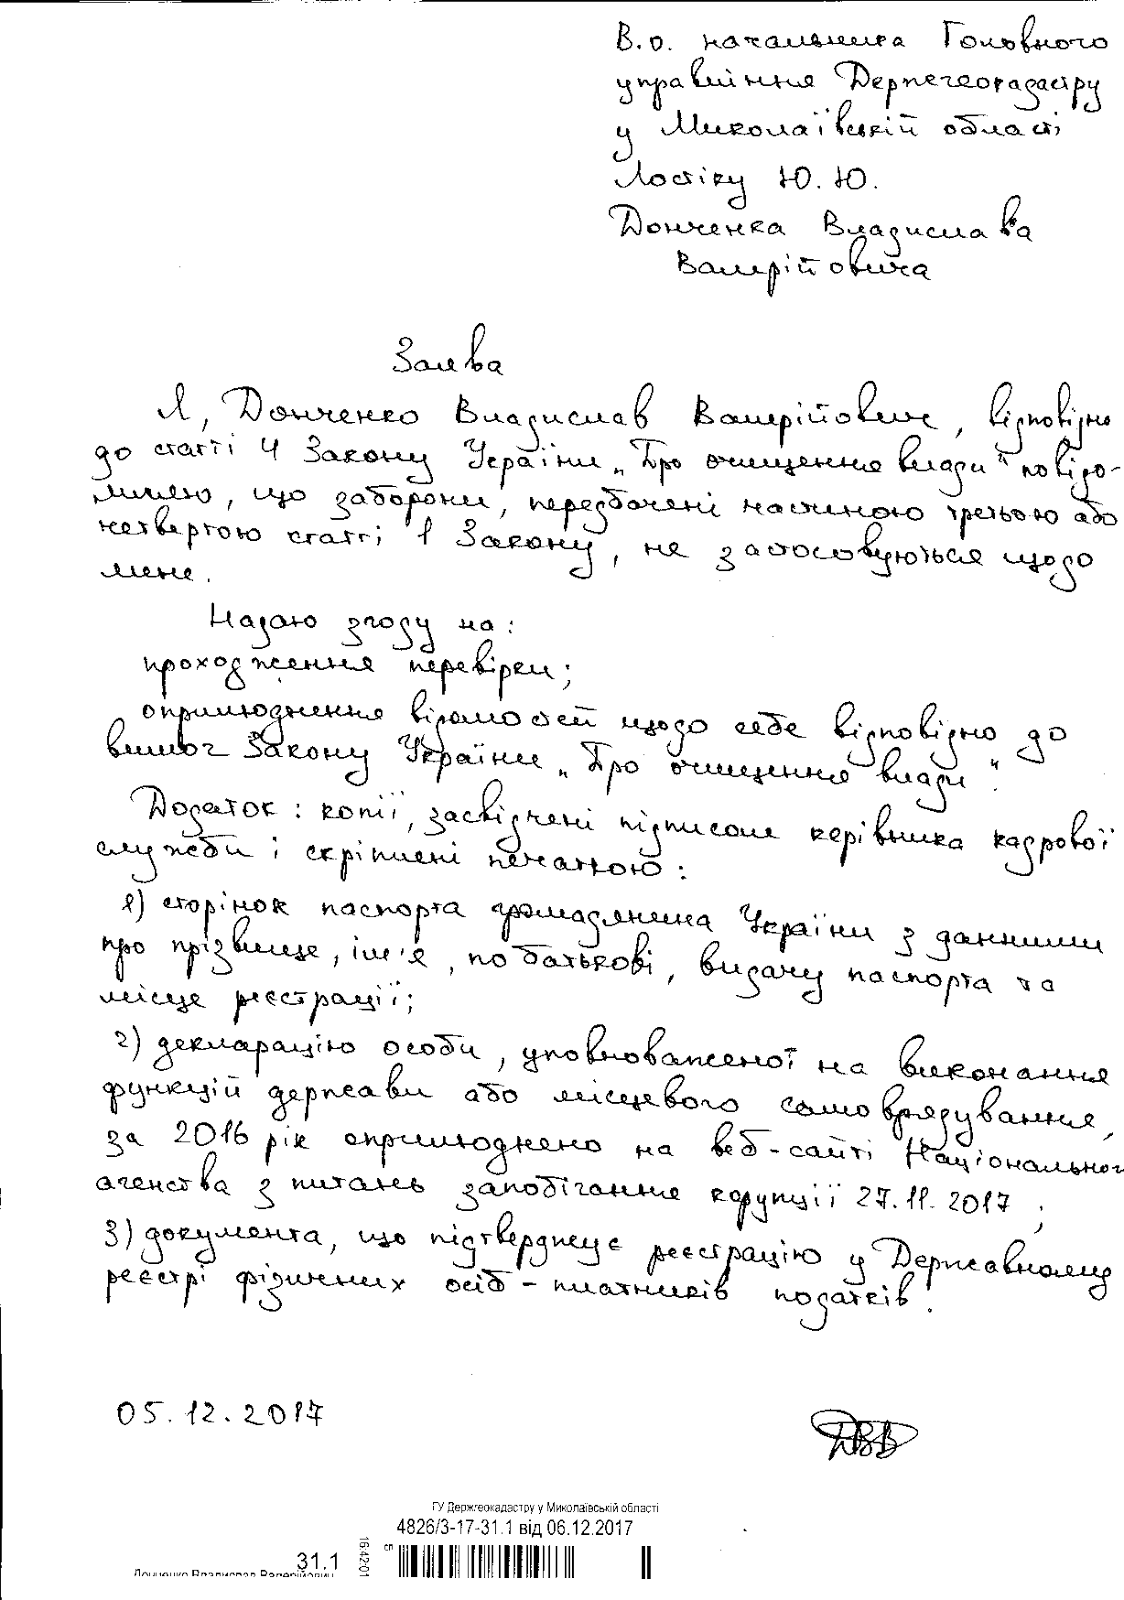 В.о. начальника Головного
управління Держгеокадастру
у Миколаївській області
Лостіку Ю.Ю.
Донченка Владислава
Валерійовича
Заява
Я, Донченко Владислав Валерійович, відповідно
до статті 4 Закону України „Про очищення влади" повідо-
мляю, що заборони, передбачені частиною третьою або
четвертою статті 1 Закону, не застосовуються щодо
мене.
Надаю згоду на:
проходження перевірки;
оприлюднення відомостей щодо себе відповідно до
вимог Закону України „Про очищення влади".
Додаток: копії, засвідчені підписом керівника кадрової
служби і скріплені печаткою:
1) сторінок паспорта громадянина України з данними
про прізвище, ім'я, по батькові, видачу паспорта та
місце реєстрації;
2) декларацію особи, уповноваженої на виконання
функцій держави або місцевого самоврядування,
за 2016 рік оприлюднено на веб-сайті Національног
агенства з питань запобігання корупції 27.11.2017;
3) документа, що підтверджує реєстрацію у Державному
реєстрі фізичних осіб-платників податків.
05.12.2017
ДВВ
ГУ Держгеокадастру у Миколаївській області
4826/3-17-31.1 від 06.12.2017
сп
16:42:01
31.1
Донченко Владислав Валерійович